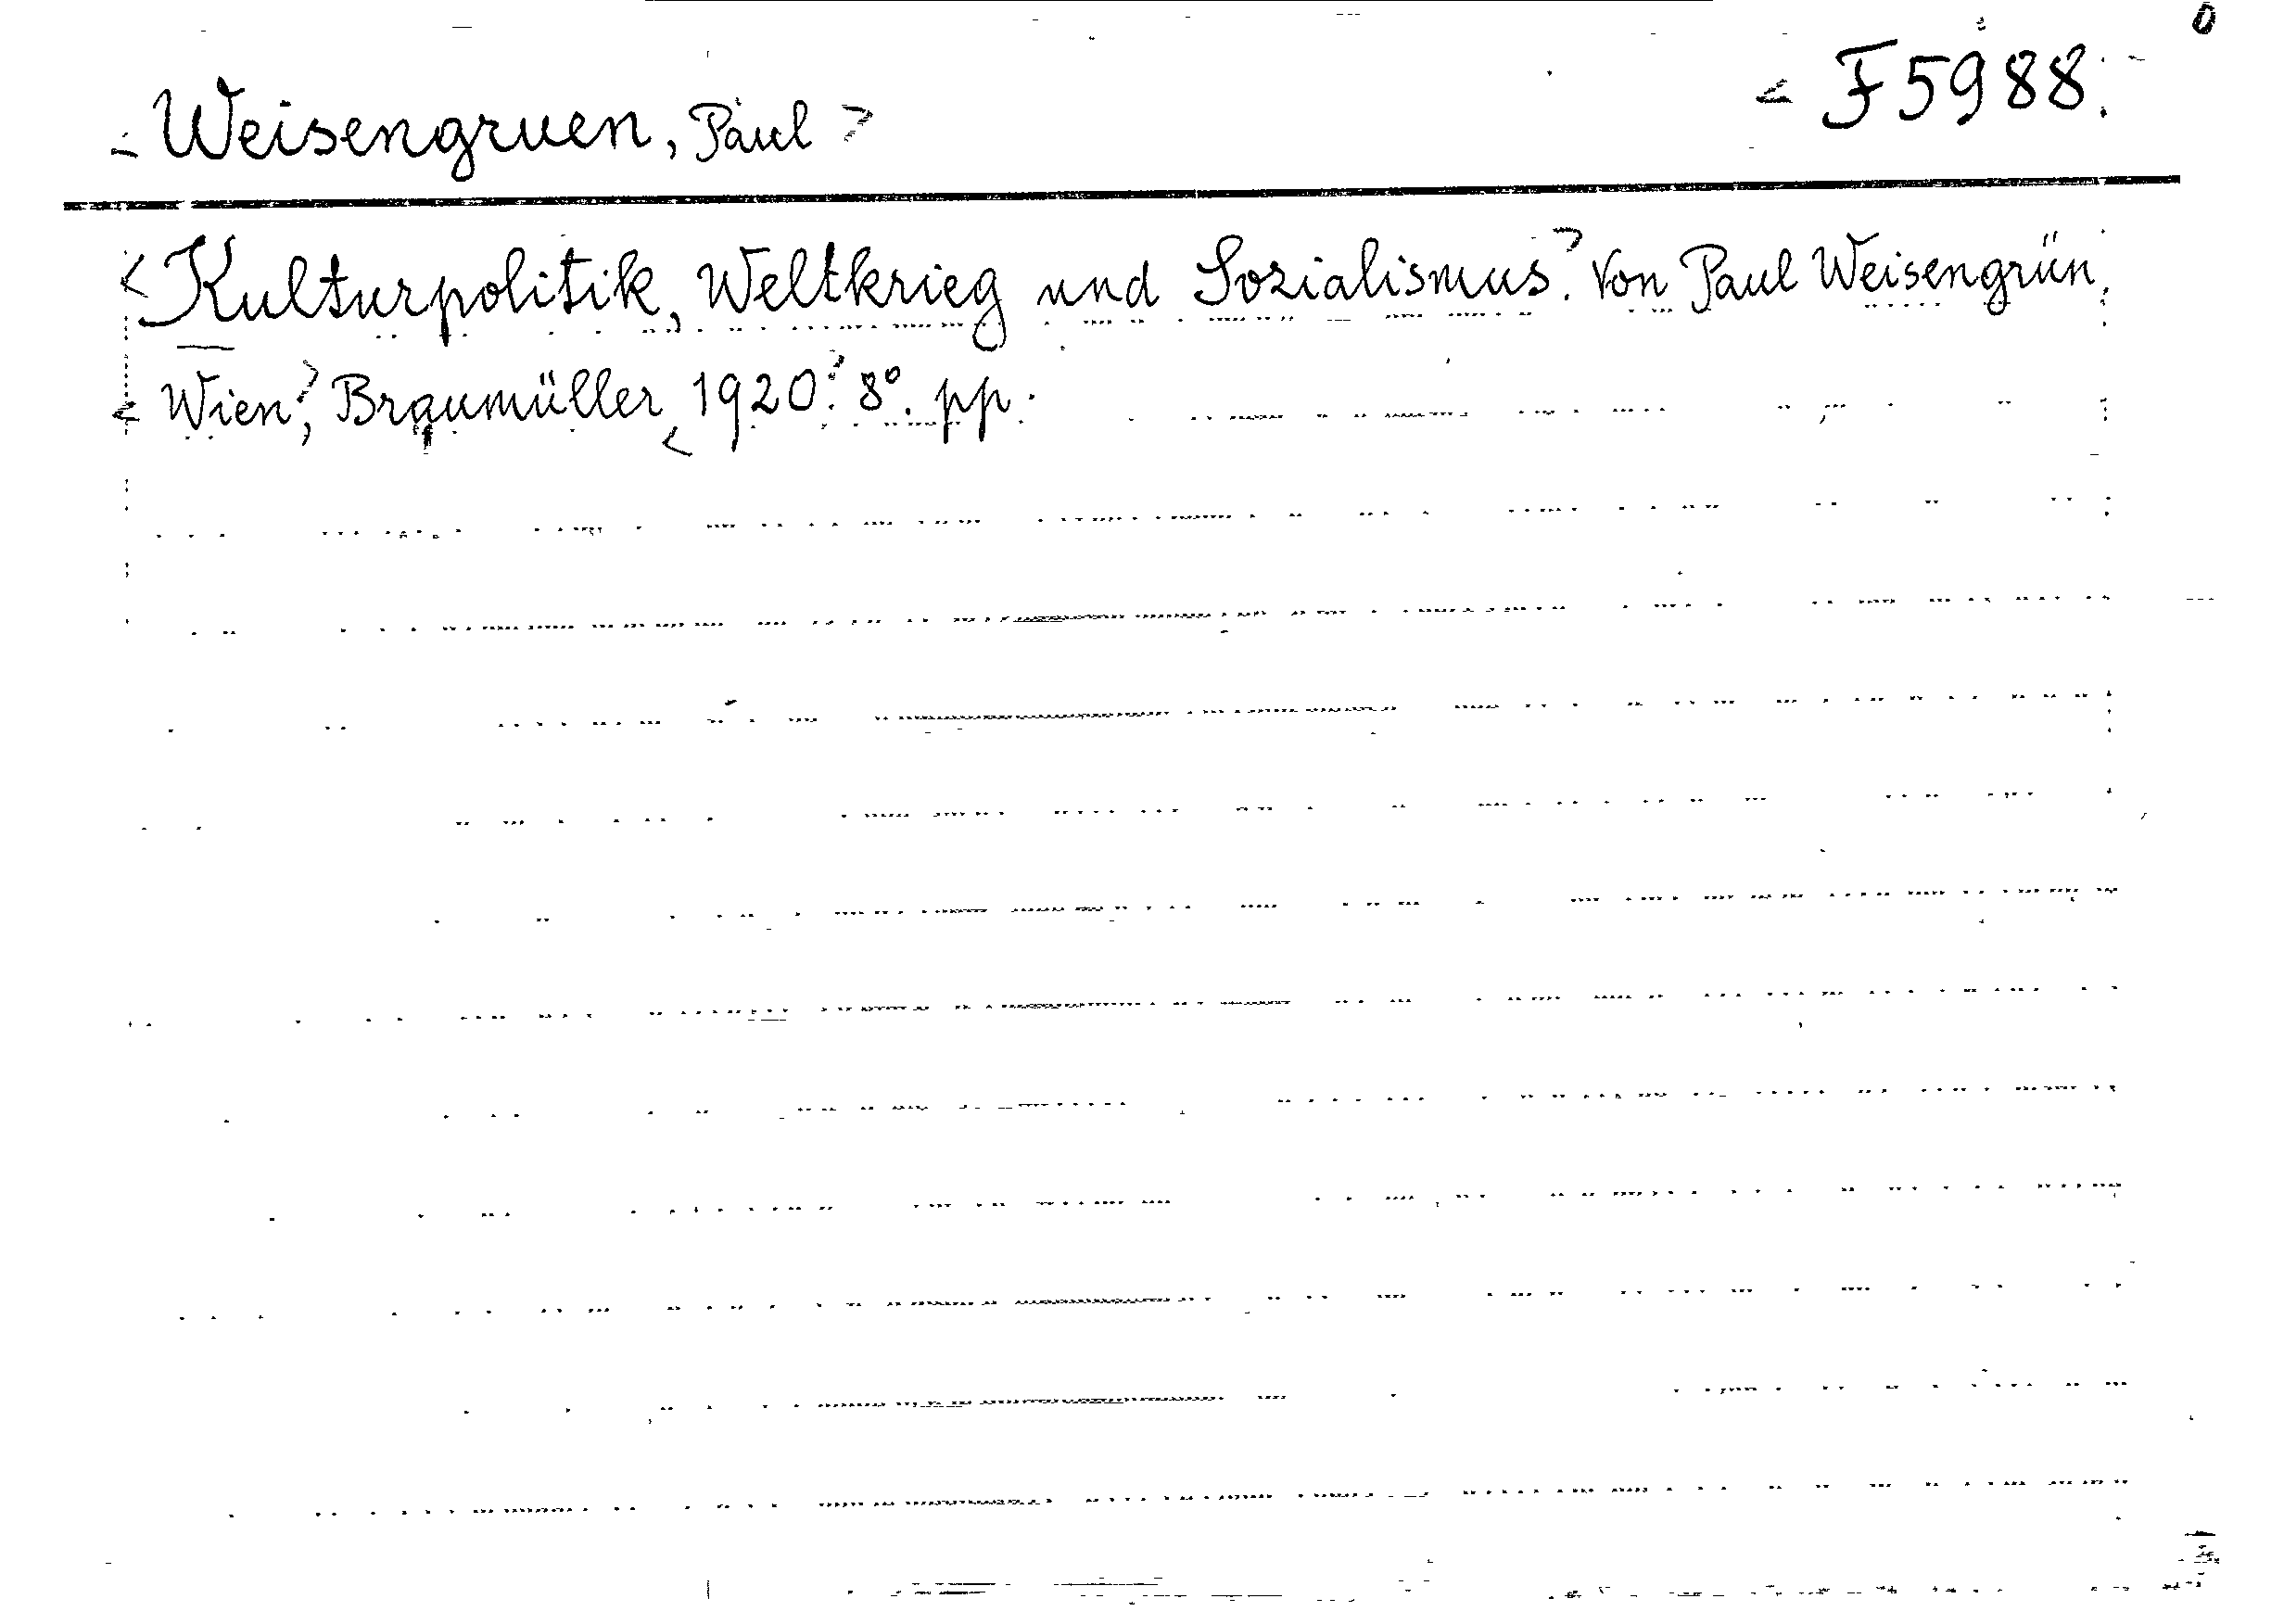 <Weisengruen, Paul> <F5988.
<Kulturpolitik, Weltkrieg und Sozialismus>. Von Paul Weisengrün.
<Wien>, Braumüller <1920>. 8°. pp.